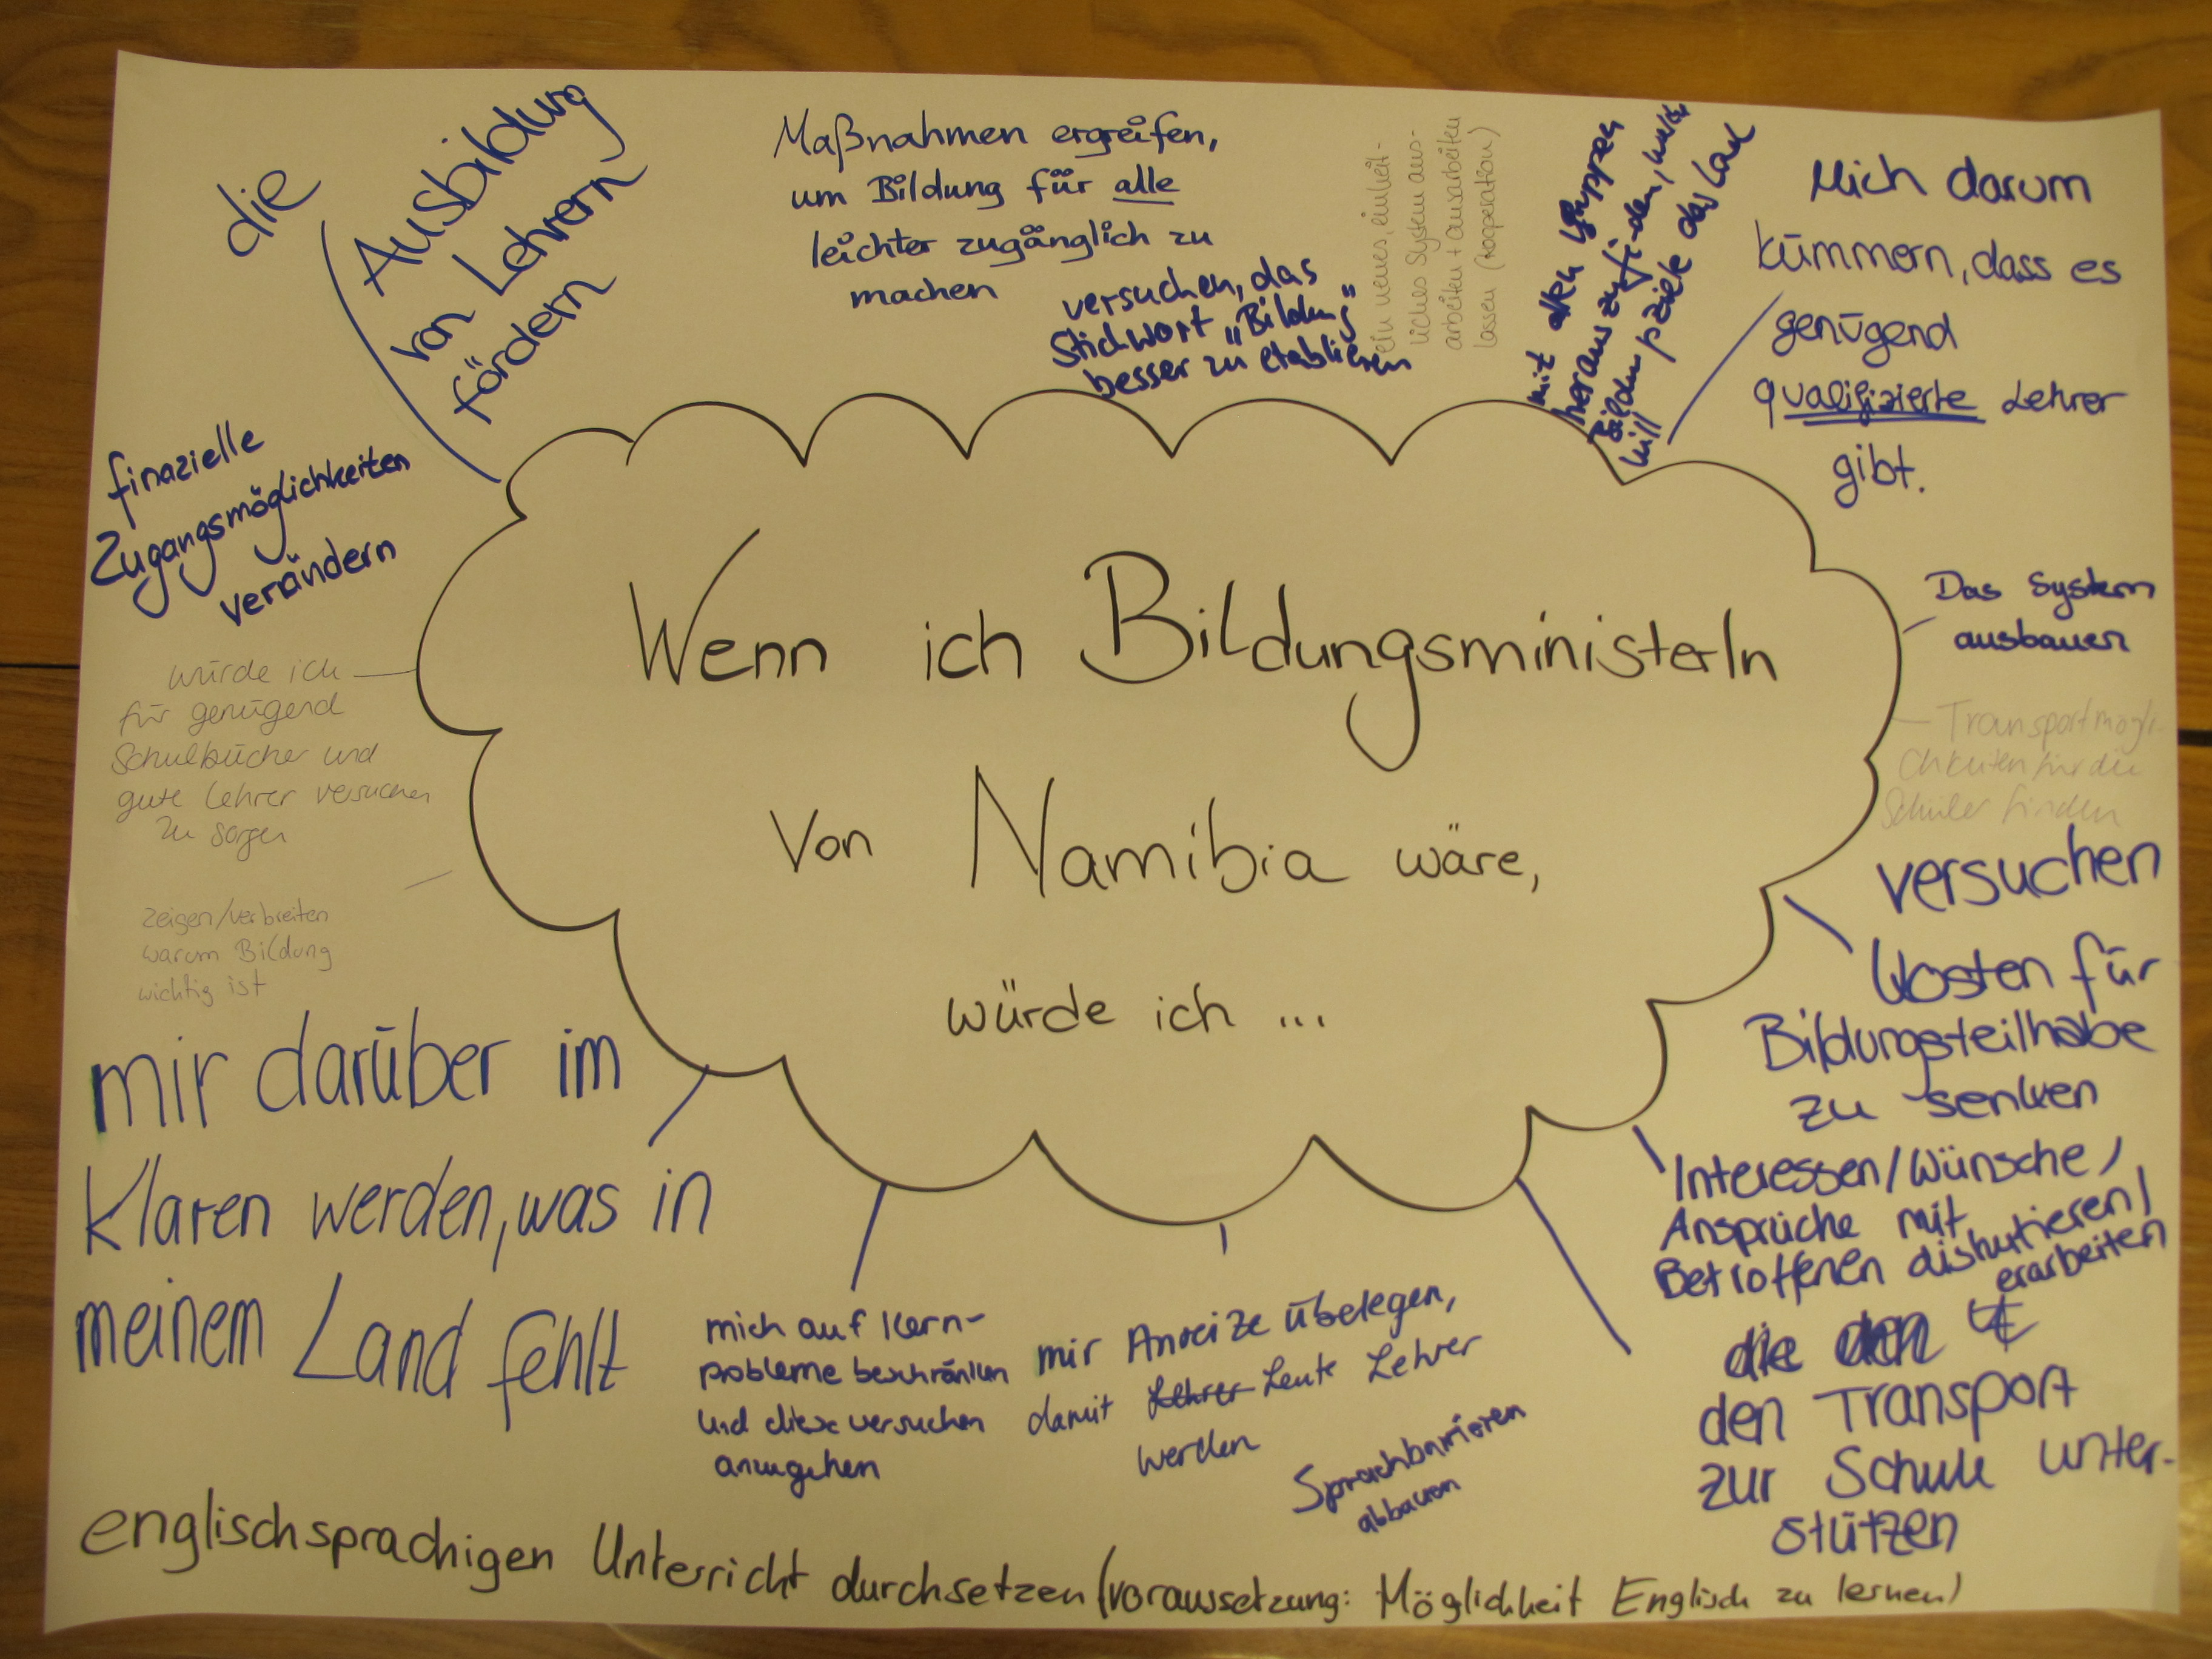 Wenn ich BildungsministerIn
von Namibia wäre,
würde ich ...
die
Ausbildung
von Lehrern
fördern
Maßnahmen ergreifen,
um Bildung für alle
leichter zugänglich zu
machen
versuchen, das
Stichwort „Bildung"
besser zu etablieren
ein neues, einheit-
liches System aus-
arbeiten + ausarbeiten
lassen (Kooperation)
mit allen Gruppen
herauszufinden, welche
Bildungsziele das Land
will
Mich darum
kümmern, dass es
genügend
qualifizierte Lehrer
gibt.
Das System
ausbauen
Transportmögli-
chkeiten für die
Schüler finden
versuchen
Kosten für
Bildungsteilhabe
zu senken
Interessen/Wünsche/
Ansprüche mit
Betroffenen diskutieren/
erarbeiten
die den
den Transport
zur Schule unter-
stützen
Sprachbarrieren
abbauen
mir Anreize übelegen,
damit Lehrer Leute Lehrer
werden
mich auf Kern-
probleme beschränken
und diese versuchen
anzugehen
mir darüber im
Klaren werden, was in
meinem Land fehlt
zeigen/verbreiten
warum Bildung
wichtig ist
würde ich
für genügend
Schulbücher und
gute Lehrer versuchen
zu sorgen
finazielle
Zugangsmöglichkeiten
verändern
englischsprachigen Unterricht durchsetzen (Voraussetzung: Möglichkeit Englisch zu lernen)